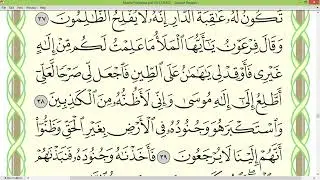 تَكُونُ لَهُۥ عَٰقِبَةُ ٱلدَّارِ إِنَّهُۥ لَا يُفْلِحُ ٱلظَّٰلِمُونَ ٣٧
وَقَالَ فِرْعَوْنُ يَٰٓأَيُّهَا ٱلْمَلَأُ مَا عَلِمْتُ لَكُم مِّنْ إِلَٰهٍ
غَيْرِى فَأَوْقِدْ لِى يَٰهَٰمَٰنُ عَلَى ٱلطِّينِ فَٱجْعَل لِّى صَرْحًا لَّعَلِّىٓ
أَطَّلِعُ إِلَىٰٓ إِلَٰهِ مُوسَىٰ وَإِنِّى لَأَظُنُّهُۥ مِنَ ٱلْكَٰذِبِينَ ٣٨
وَٱسْتَكْبَرَ هُوَ وَجُنُودُهُۥ فِى ٱلْأَرْضِ بِغَيْرِ ٱلْحَقِّ وَظَنُّوٓا۟
أَنَّهُمْ إِلَيْنَا لَا يُرْجَعُونَ ٣٩ فَأَخَذْنَٰهُ وَجُنُودَهُۥ فَنَبَذْنَٰهُمْ